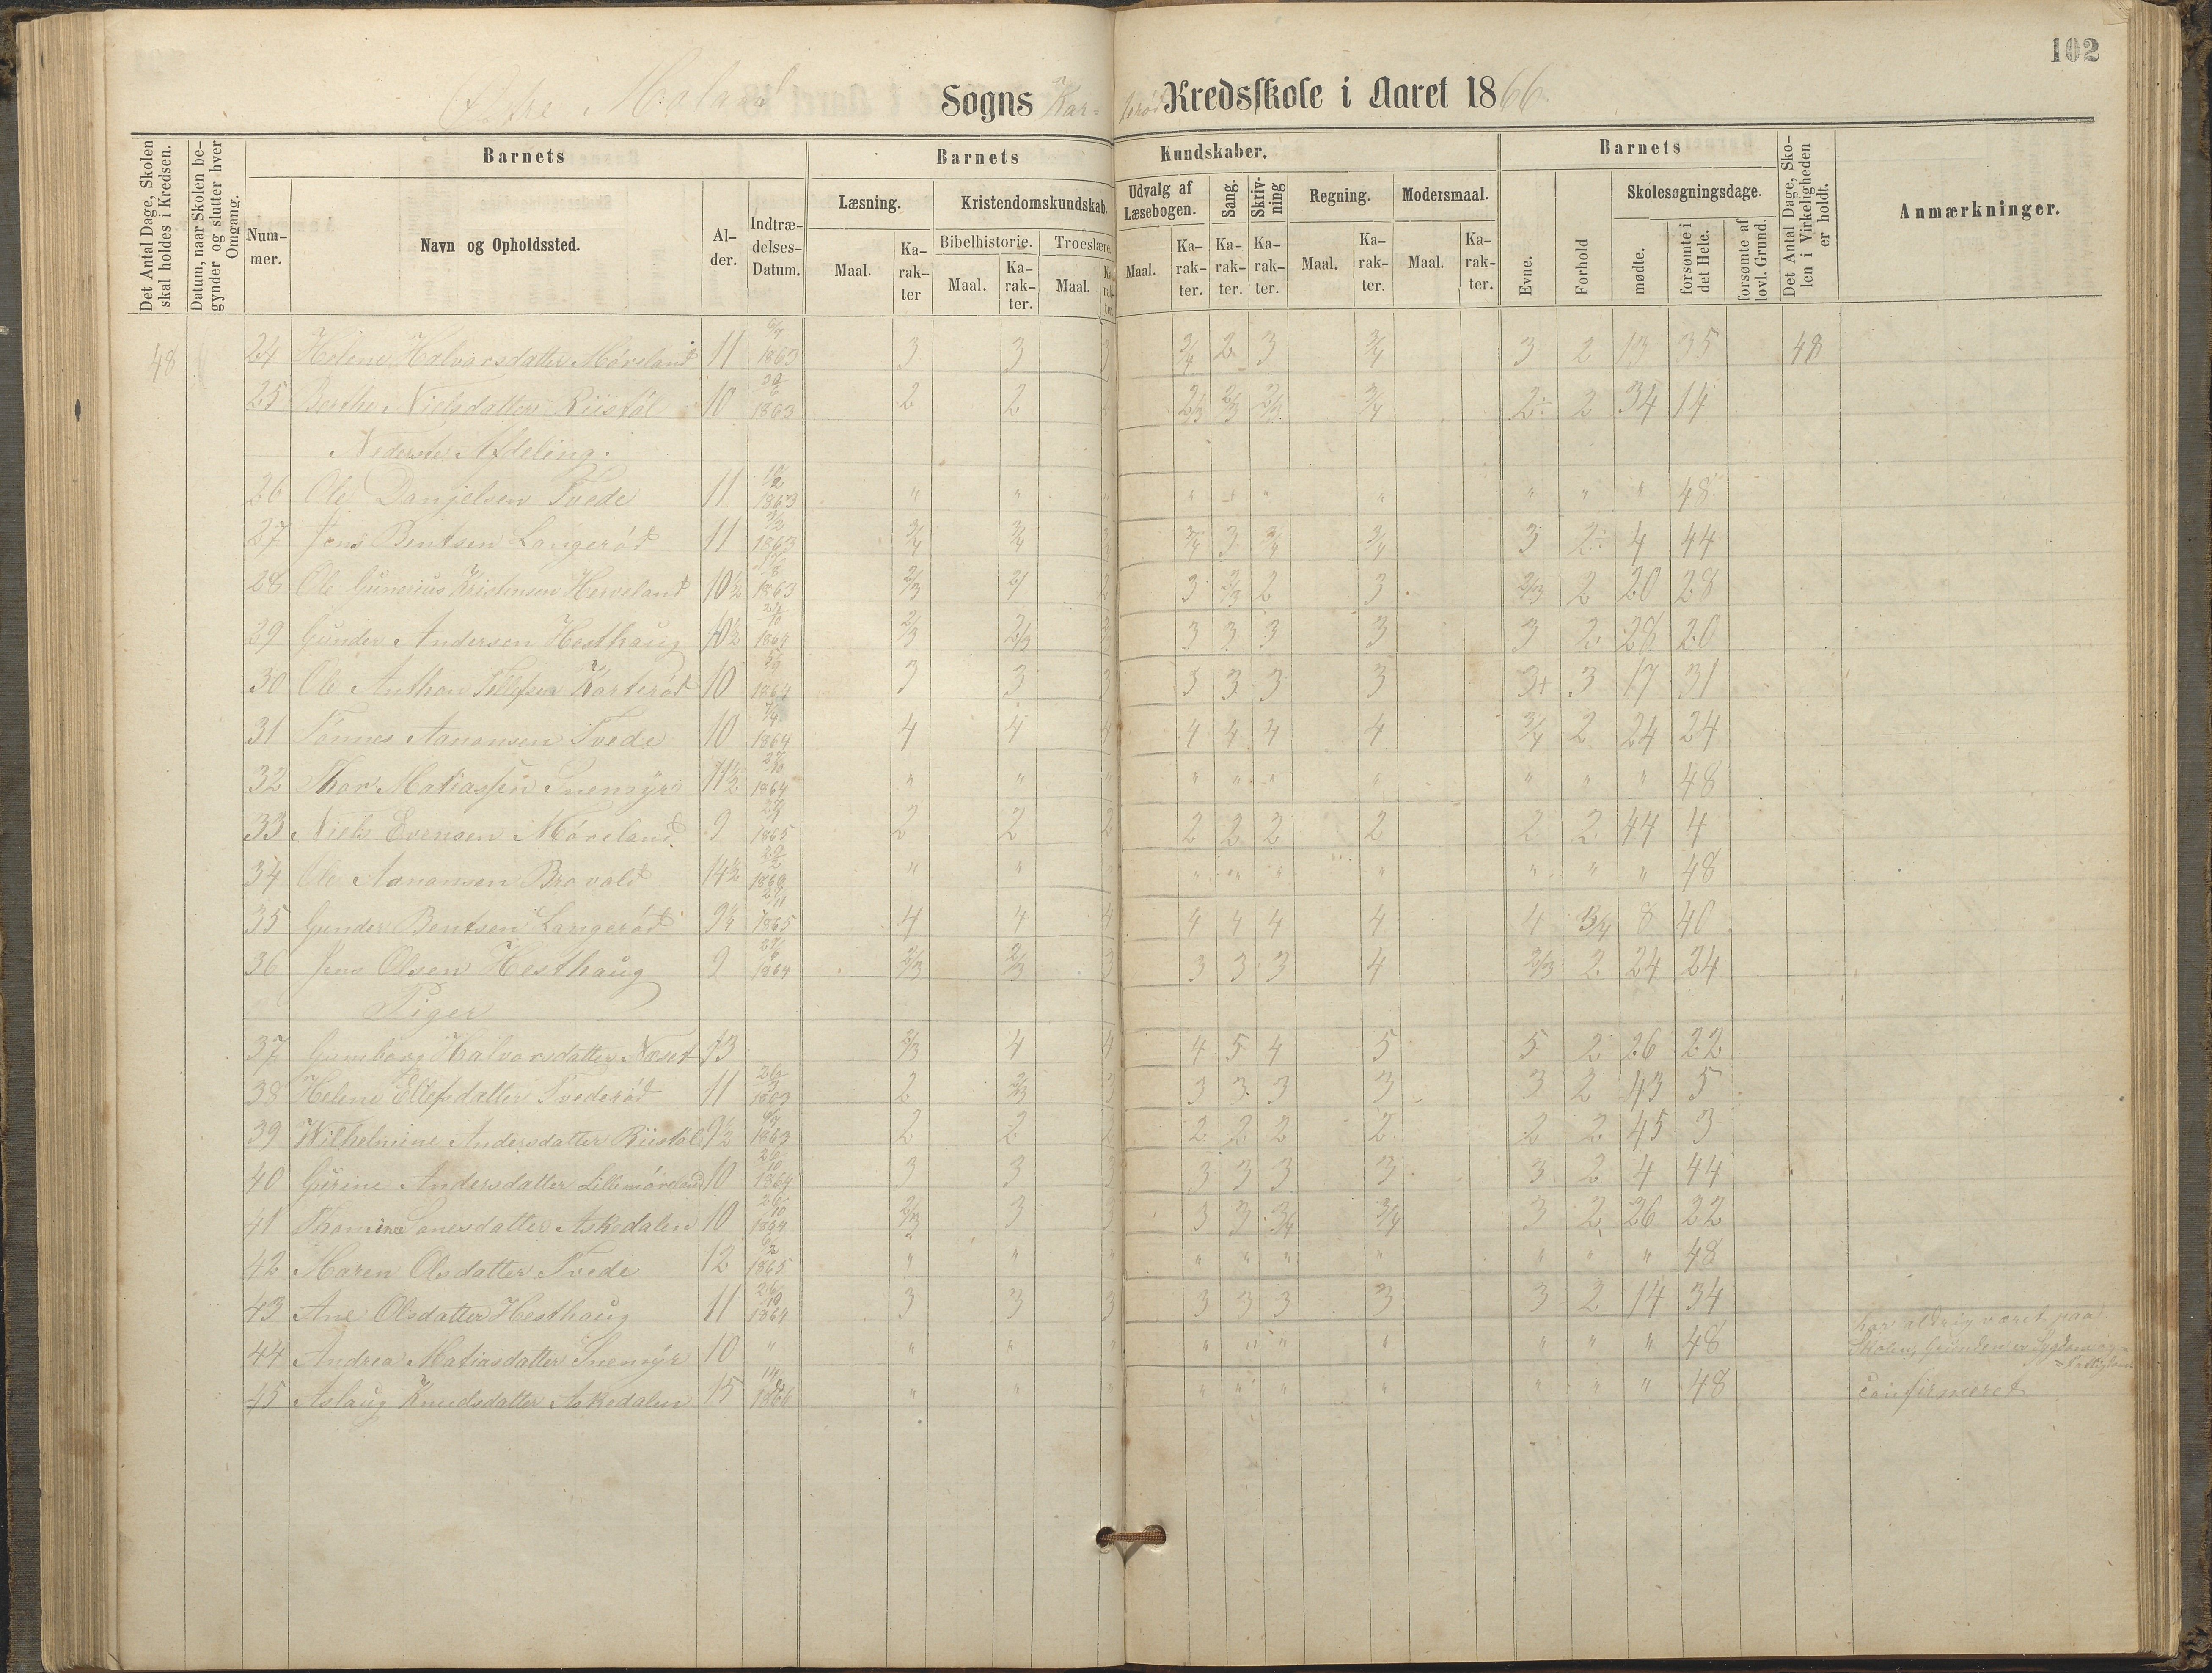 102
Sogns Kar= terød Kredsskole i Aaret 1866
Det Antal Dage, Skolen skal holdes i Kredsen.
Datum, naar Skolen be- gynder og slutter hver Omgang.
Barnets
Barnets Kundskaber.
Barnets
Det Antal Dage, Sko- len i Virkeligheden er holdt.
Anmærkninger.
Num- mer.
Navn og Opholdssted.
Al- der.
Indtræ- delses- Datum.
Læsning.
Kristendomskundskab.
Udvalg af Læsebogen.
Sang.
Skriv- ning
Regning.
Modersmaal.
Evne.
Forhold
Skolesøgningsdage.
Bibelhistorie.
Troeslære.
mødte.
forsømte i det Hele.
forsømte af lovl. Grund.
Maal. Ka- rak- ter Maal. Ka- rak- ter. Maal. Ka- rak- ter. Maal. Ka- rak- ter. Ka- rak- ter. Ka- rak- ter. Maal. Ka- rak- ter. Maal. Ka- rak- ter.
48 24 Helene Halvorsdatter Møreland 11 6/7 1863 3 3 3 3/4 2 3 3/4 3 2 13 35 48
25 Berthe Nielsdatter Riistøl 10 1863 2 2 2/3 2/3 2/3 3/4 2÷ 2 34 14
Nederste Afdeling.
26 Ole Danjelsen Tvede 11 10/2 1863 " " " " " " " " " " 48
27 Jens Bentsen Langerød 11 3/2 1863 3/4 3/4 3/4 3 3/4 3/4 3 2÷ 4 44
28 Ole Gunerius Kristensen Herveland 10½ 1863 2/3 2 3 2/3 2 3 2/3 2 20 28
29 Gunder Andersen Hesthaug 10½ 1864 2/3 2/3 3 3 3 3 3 2 28 20
30 Ole Anthon Tellefsen Karterød 10 1864 3 3 3 3 3 3 3 3+ 3 17 31
31 Tønnes Aanonsen Tvede 10 1864 4 4 4 4 4 4 4 3/4 2 24 24
32 Thor Matiassen Snemyr 11½ 27/10 1864 " " " " " " " " " " 48
33 Niels Evensen Møreland 9 1865 2 2 2 2 2 2 2 2 2 44 4
34 Ole Aanonsen Brovold 14½ " " " " " " " " " " 48
35 Gunder Bentsen Langerød 9½ 1865 4 4 4 4 4 4 4 4 3/4 8 40
36 Jens Olsen Hesthaug 9 1864 2/3 2/3 3 3 3 3 4 2/3 2 24 24
Piger
37 Gumborg Halvorsdatter Næset 13 2/3 4 4 4 5 4 5 5 2 26 22
38 Helene Ellefsdatter Tvederød 11 1863 2 2/3 3 3 3 3 3 3 2 43 5
39 Wilhelmine Andersdatter Riistøl 9½ 6/7 1863 2 2 2 2 2 2 2 2 2 45 3
40 Gurine Andersdatter Lillemøreland 10 26/10 1864 3 3 3 3 3 3 3 3 2 4 44
41 Thomine Tonesdatter Askedalen 10 26/10 1864 2/3 3 3 3 3 3/4 3/4 3 2 26 22
42 Maren Olsdatter Tvede 12 6/2 1865 " " " " " " " " " " 48
43 Ane Olsdatter Hesthaug 11 26/10 1864 3 3 3 3 3 3 3 3 2 14 34
44 Andrea Matiasdatter Snemyr 10 " " " " " " " " " " " 48 har aldrig været paa Skolen, Grunden er Sygdom og =Fattigdom
45 Aslaug Knudsdatter Askedalen 15 1866 " " " " " " " " " " 48 Confirmeret